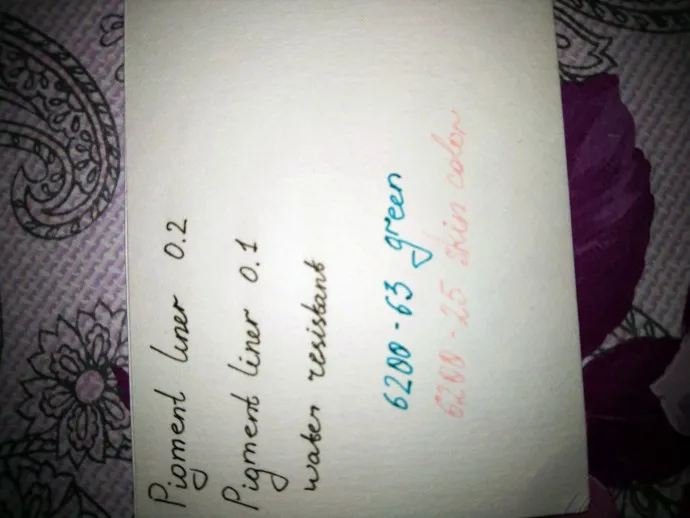 Pigment liner 0.2
Pigment liner 0.1
water resistant
6200-63 green
6200-25 skin color